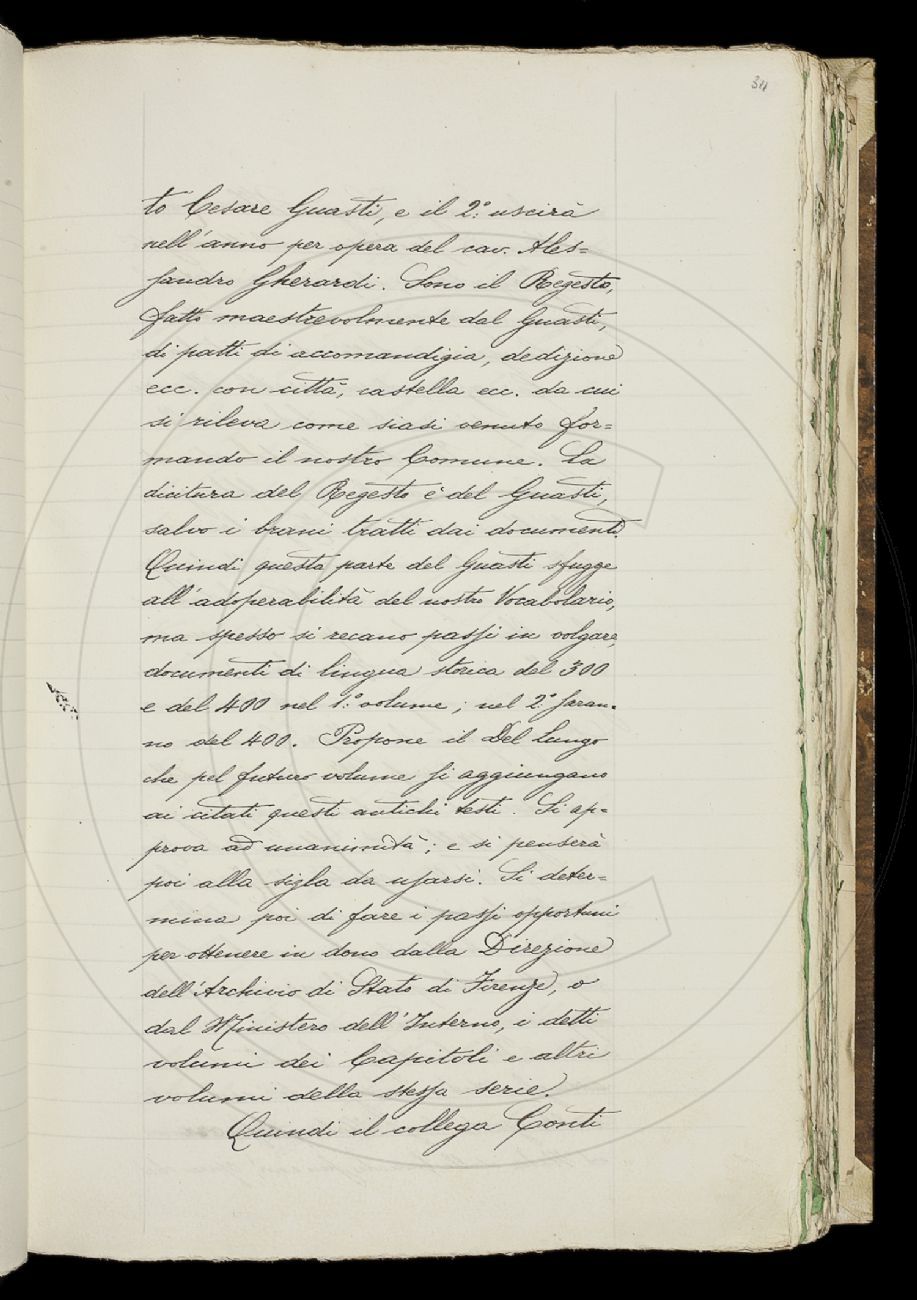 34
to Cesare Guasti, e il 2.° uscirà
nell'anno per opera del cav. Ales=
sandro Gherardi. Sono il Regesto,
fatto maestrevolmente dal Guasti,
di patti di accomandigia, dedizione
ecc. con città, castella ecc. da cui
si rileva come siasi venuto for=
mando il nostro Comune. La
dicitura del Regesto è del Guasti,
salvo i brani tratti dai documenti.
Quindi questa parte del Guasti sfugge
all'adoperabilità del nostro Vocabolario,
ma spesso si recano passi in volgare,
documenti di lingua storica del 300
e del 400 nel 1.° volume; nel 2.° saran=
no del 400. Propone il Del Lungo
che pel futuro volume si aggiungano
ai citati questi antichi testi. Si ap=
prova ad unanimità; e si penserà
poi alla sigla da usarsi. Si deter=
mina poi di fare i passi opportuni
per ottenere in dono dalla Direzione
dell'Archivio di Stato di Firenze, o
dal Ministero dell'Interno, i detti
volumi dei Capitoli e altri
volumi della stessa serie.
Quindi il collega Conti